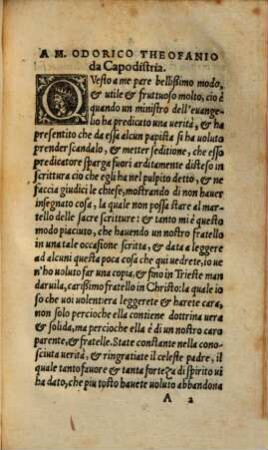 A M. ODORICO THEOFANIO
da Capodistria.
QVesto a me pare bellissimo modo,
& utile & fruttuoso molto, cio è
quando un ministro dell'euange-
lio ha predicato una uerità, & ha
presentito che da essa alcun papista si ha uoluto
prender scandalo, & metter seditione, che esso
predicatore sparga fuori arditamente disteso in
scrittura cio che egli ha nel pulpito detto, & ne
faccia giudici le chiese, mostrando di non hauer
insegnato cosa, la quale non possa stare al mar-
tello delle sacre scritture: & tanto mi è questo
modo piaciuto, che hauendo un nostro fratello
in una tale occasione scritta, & data a leggere
ad alcuni questa poca cosa che qui uedrete, io ue
n'ho uoluto far una copia, & fino in Trieste man
daruila, carißimo fratello in Christo: la quale io
so che uoi uolentiera leggerete & harete cara,
non solo percioche ella contiene dottrina uera
& solida, ma percioche ella è di un nostro caro
parente, & fratelle. State constante nella cono-
sciuta uerità, & ringratiate il celeste padre, il
quale tanto fauore & tanta fortezza di spirito ui
ha dato, che piu tosto hauete uoluto abbandona
A 2